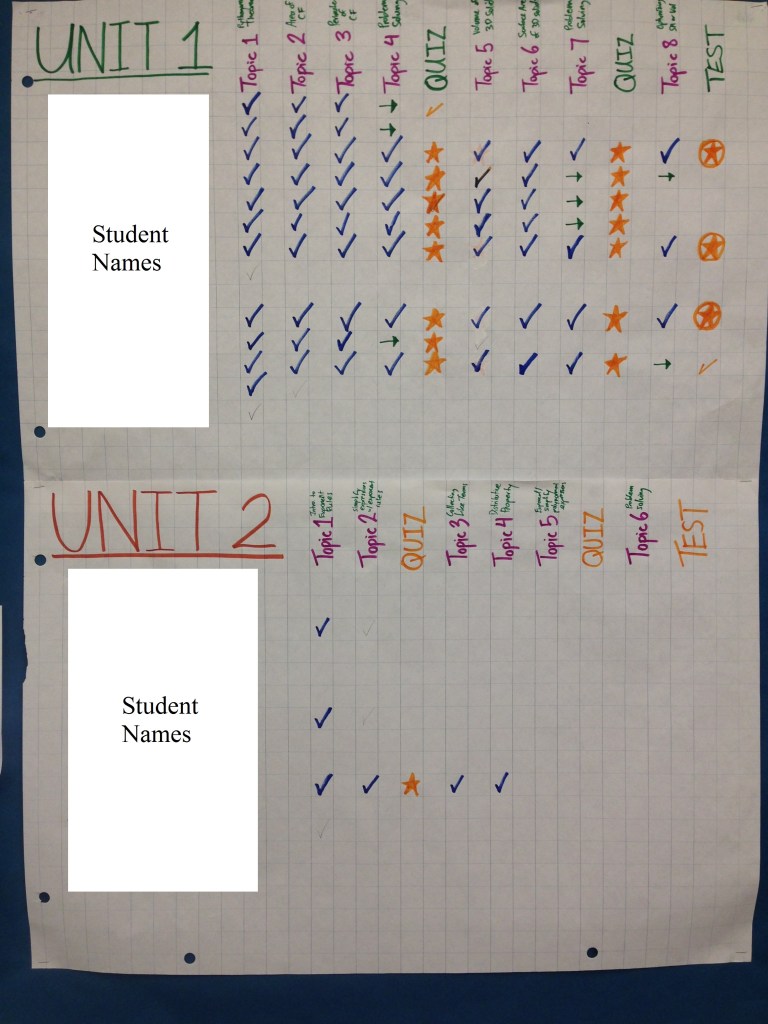 UNIT 1
Topic 1
Topic 2
Area of
CF
Topic 3
of
CF
Topic 4
Problem
Solving
QUIZ
Topic 5
Volume of
3D Solids
Topic 6
Surface Area
of 3D solids
Topic 7
Problem
Solving
QUIZ
Topic 8
Optimizing
TEST
Student
Names
UNIT 2
Topic 1
Intro to
Exponent
Rules
Topic 2
Simplify
expressions
w/ exponent
rules
QUIZ
Topic 3
Collecting
Like Terms
Topic 4
Distributive
Property
Topic 5
Expand/
Simplify
polynomial
QUIZ
Topic 6
Problem
Solving
TEST
Student
Names